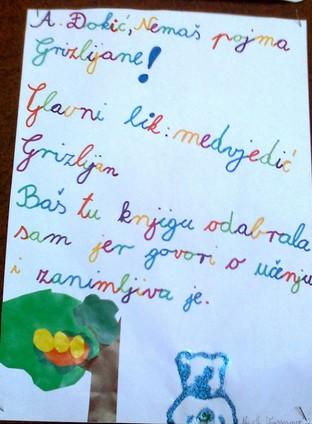 A. Đokić, Nemaš pojma
Grizlijane!
Glavni lik: medvjedić
Grizlijan
Baš tu knjigu odabrala
sam jer govori o učenju
i zanimljiva je.